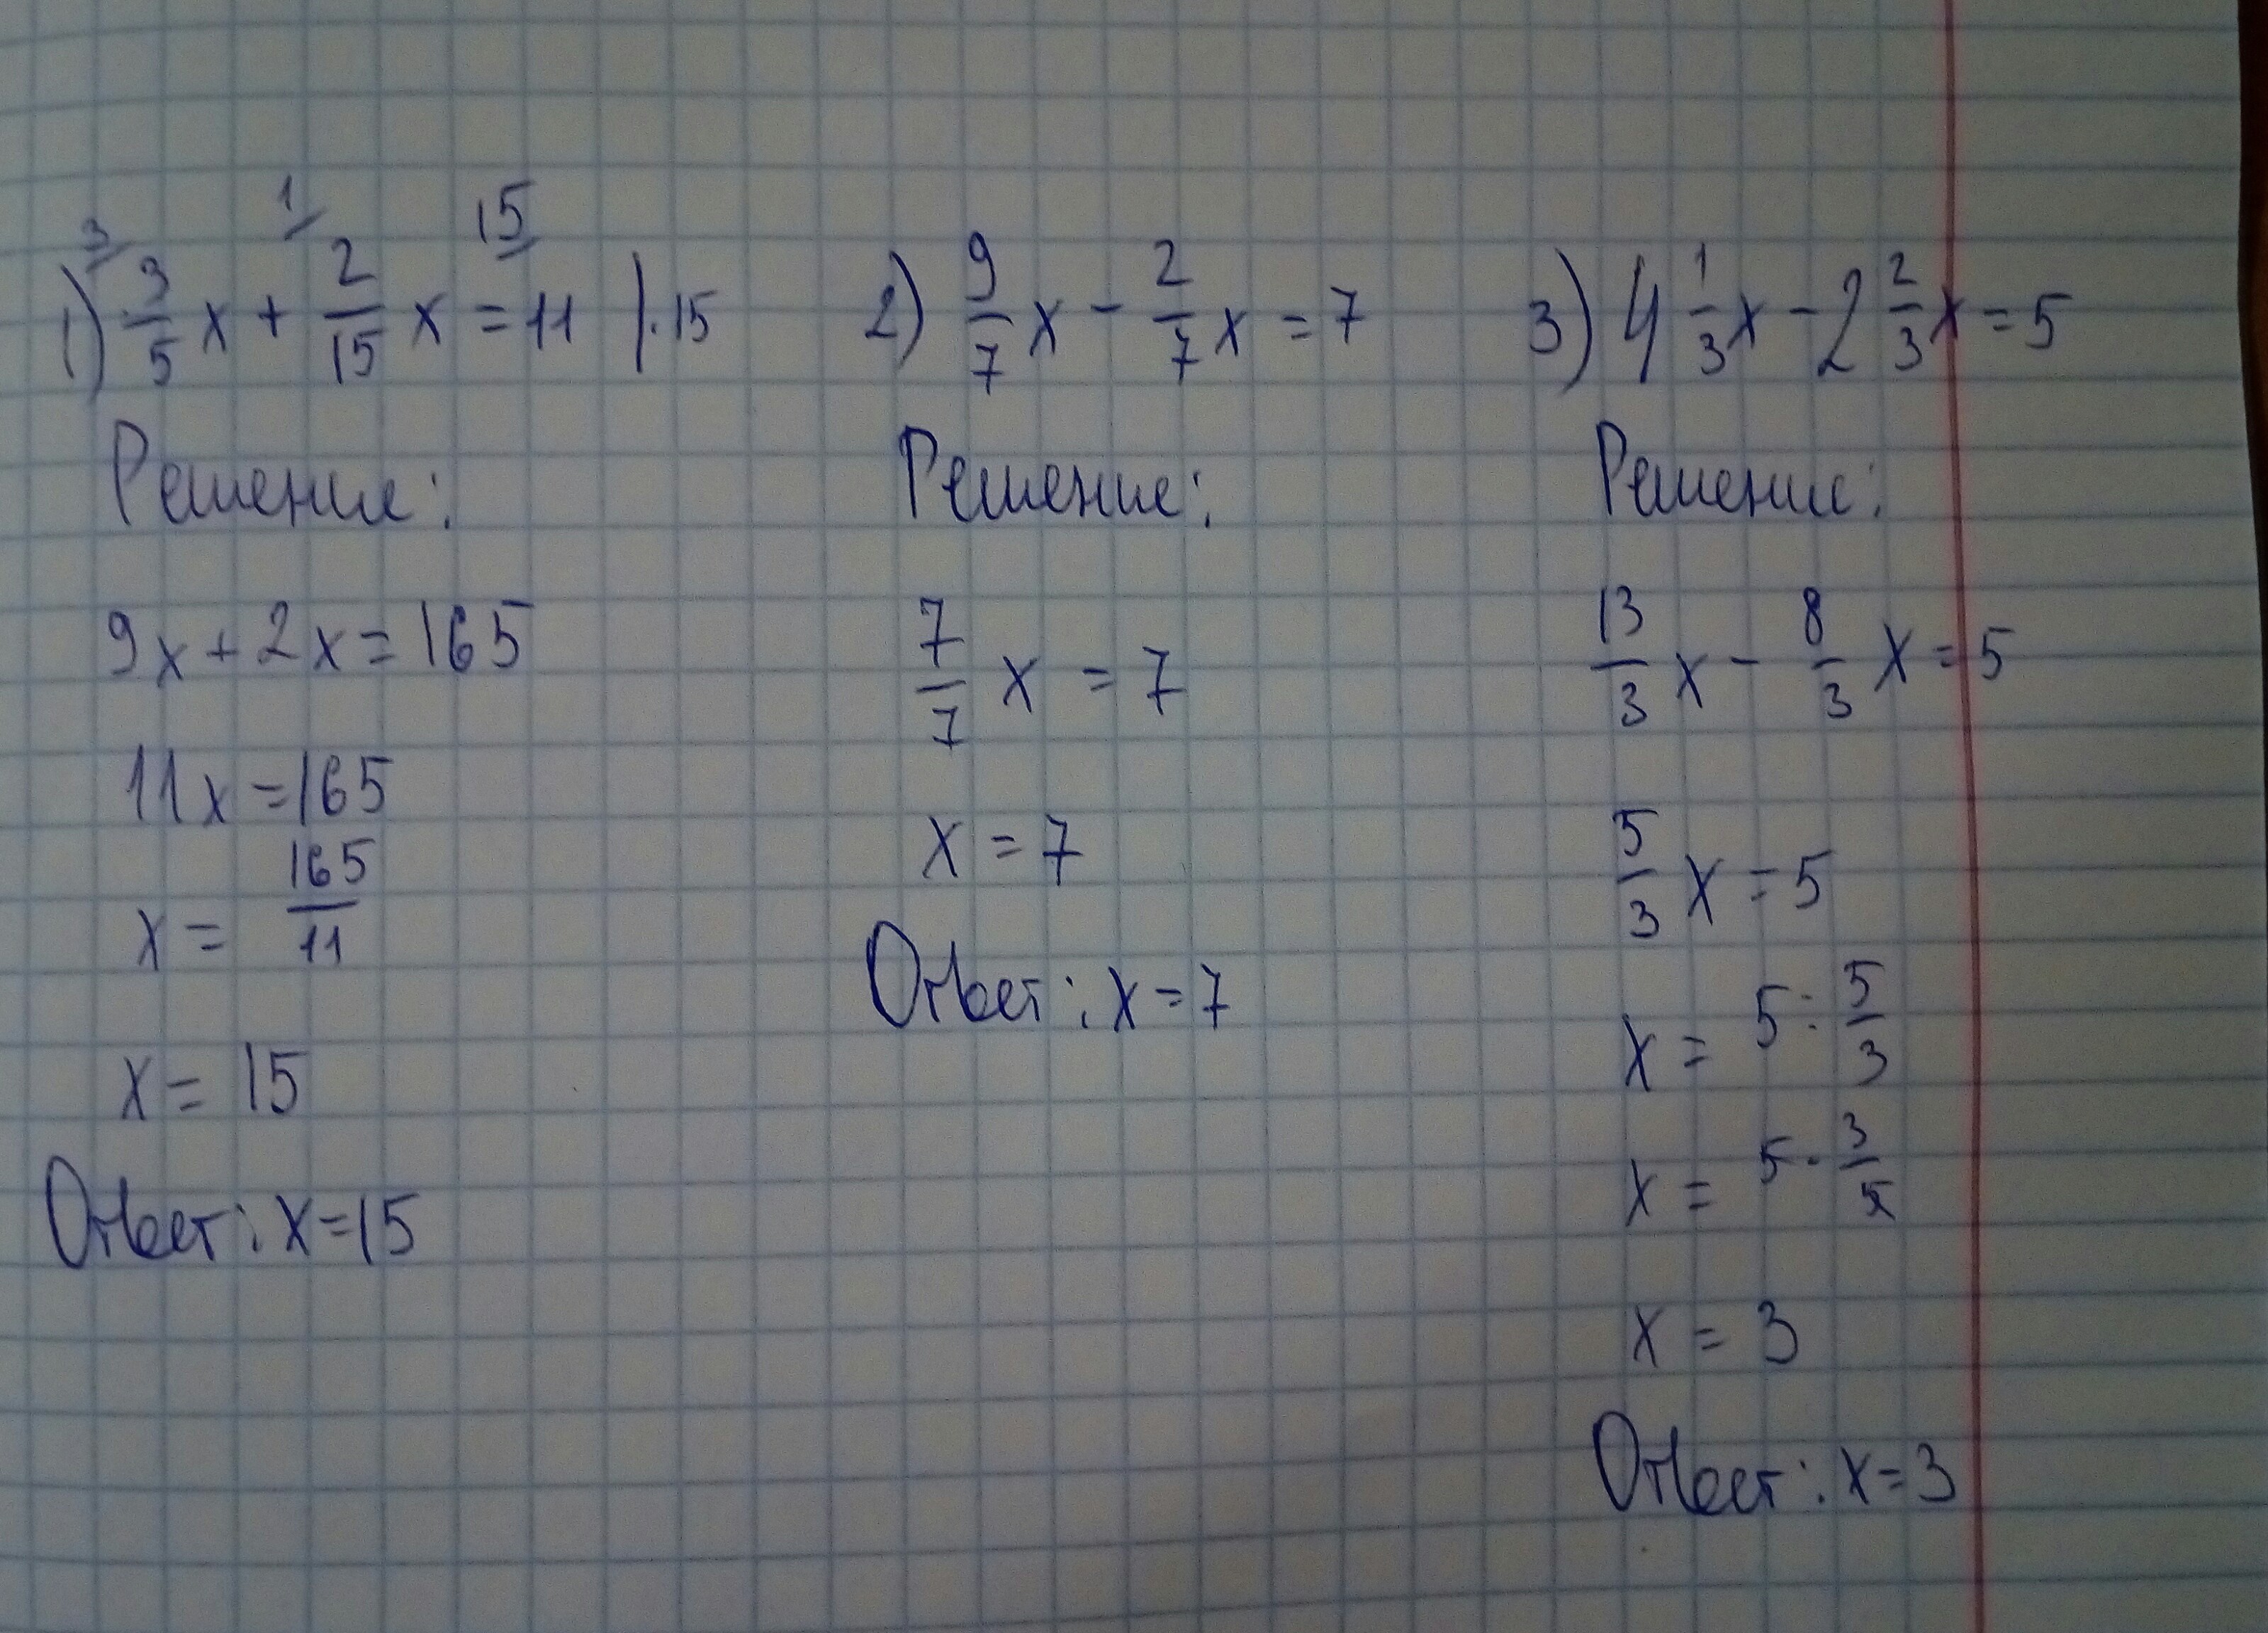 1) 3/5 x + 2/15 x = 11 | · 15
3 1 15
Решение:
9x + 2x = 165
11x = 165
x = 165/11
x = 15
Ответ: x = 15
2) 9/7 x - 2/7 x = 7
Решение:
7/7 x = 7
x = 7
Ответ: x = 7
3) 4 1/3 x - 2 2/3 x = 5
Решение:
13/3 x - 8/3 x = 5
5/3 x = 5
x = 5 : 5/3
x = 5 · 3/5
x = 3
Ответ: x = 3